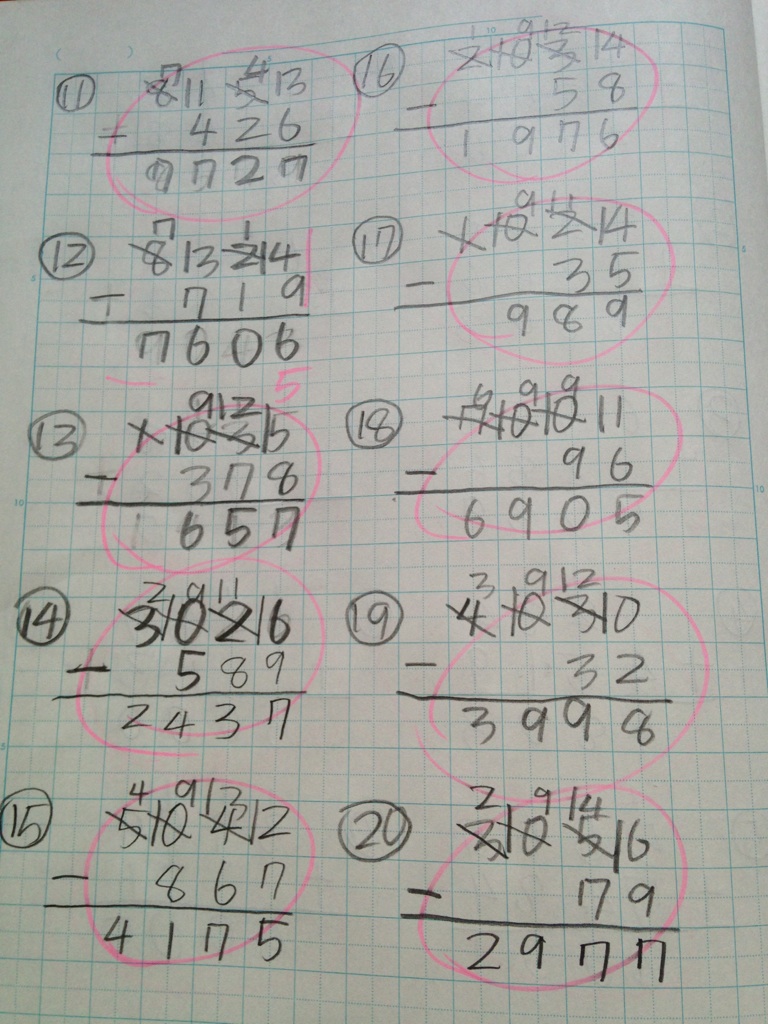 7 4
⑪ 8 11 5 13
- 4 2 6
7 7 2 7
7 1
⑫ 8 13 2 14
- 7 1 9
7 6 0 6
5
9 12
⑬ 1 10 3 15
- 3 7 8
6 5 7
2 9 11
⑭ 3 10 2 16
- 5 8 9
2 4 3 7
4 9 13
⑮ 5 10 4 12
- 8 6 7
4 1 7 5
1 9 12
⑯ 2 10 3 14
- 5 8
1 9 7 6
9 11
⑰ 1 10 2 14
- 3 5
9 8 9
6 9 9
⑱ 7 10 10 11
- 9 6
6 9 0 5
3 9 12
⑲ 4 10 3 10
- 3 2
3 9 9 8
2 9 14
⑳ 3 10 5 16
- 7 9
2 9 7 7